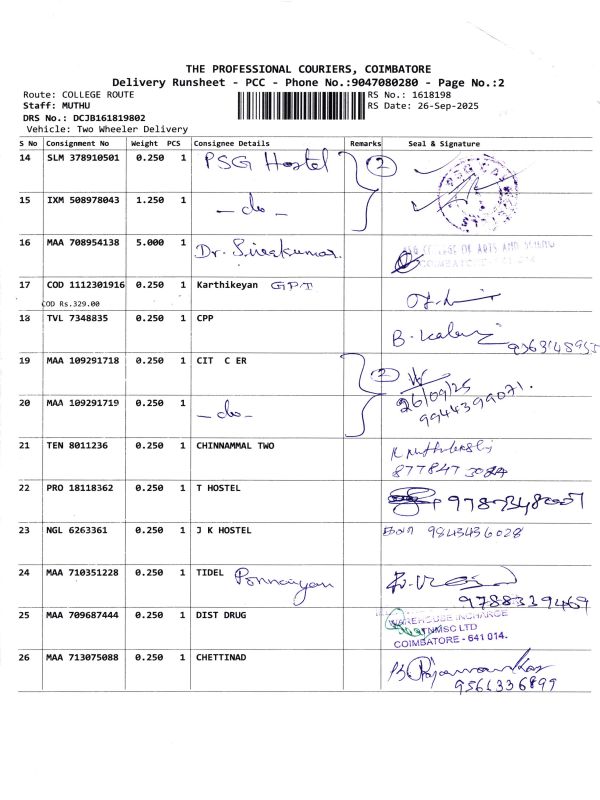 THE PROFESSIONAL COURIERS, COIMBATORE
Delivery Runsheet - PCC - Phone No.:9047080280 - Page No.:2
Route: COLLEGE ROUTE RS No.: 1618198
Staff: MUTHU RS Date: 26-Sep-2025
DRS No.: DCJB161819802
Vehicle: Two Wheeler Delivery
S No Consignment No Weight PCS Consignee Details Remarks Seal & Signature
14 SLM 378910501 0.250 1 PSG Hostel 2
15 IXM 508978043 1.250 1 - do -
16 MAA 708954138 5.000 1 Dr. Sivakumar. COLLEGE OF ARTS AND
COIMBATORE
17 COD 1112301916 0.250 1 Karthikeyan GPT
COD Rs.329.00
18 TVL 7348835 0.250 1 CPP B.
19 MAA 109291718 0.250 1 CIT C ER 2
26/09/25
20 MAA 109291719 0.250 1 - do - 9944399071.
21 TEN 8011236 0.250 1 CHINNAMMAL TWO
22 PRO 18118362 0.250 1 T HOSTEL
23 NGL 6263361 0.250 1 J K HOSTEL 9843436028
24 MAA 710351228 0.250 1 TIDEL
9788339469
25 MAA 709687444 0.250 1 DIST DRUG WAREHOUSE INCHARGE
TNMSC LTD
COIMBATORE - 641 014.
26 MAA 713075088 0.250 1 CHETTINAD
9561336899